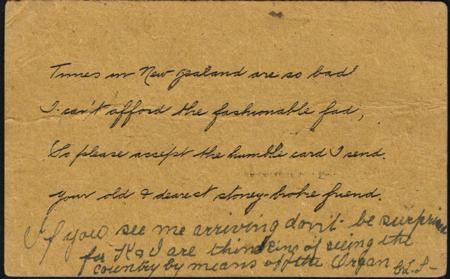 Times in New Zealand are so bad
I can't afford the fashionable fad,
So please accept the humble card I send.
Your old & dearest stoney-broke friend.
If you see me arriving don't be surprise
for K & I are thinking of seeing the
country by means of the Organ